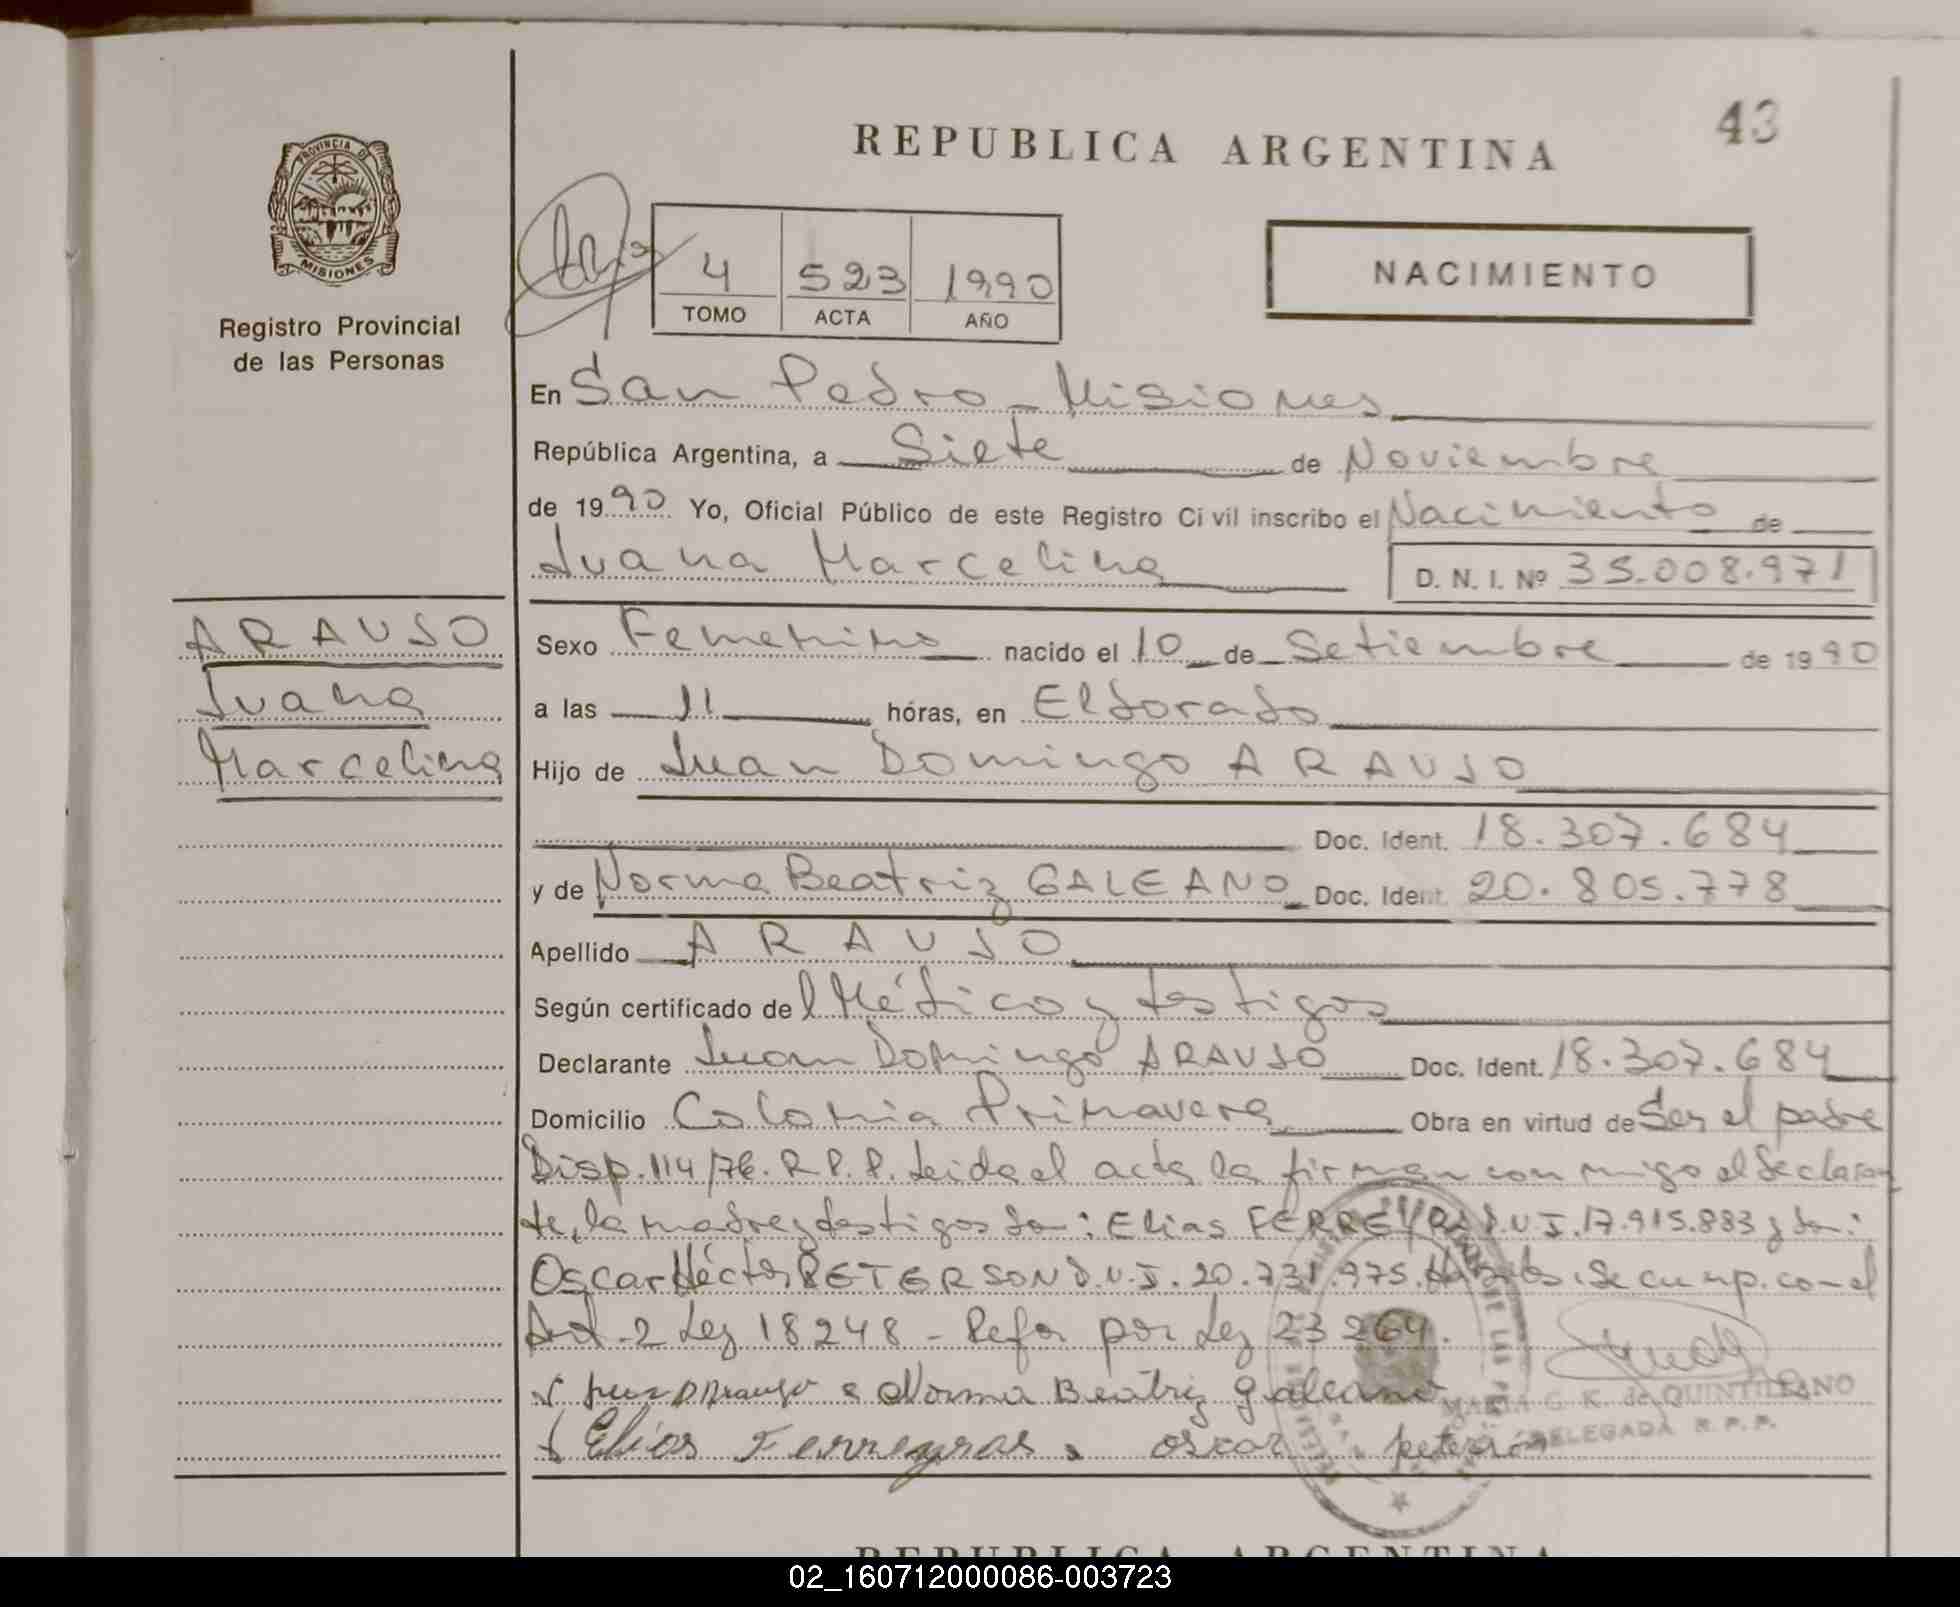 43
REPUBLICA ARGENTINA
PROVINCIA DE
MISIONES
Registro Provincial
de las Personas
4 523 1990
TOMO ACTA AÑO
NACIMIENTO
En San Pedro - Misiones
República Argentina, a Siete de Noviembre
de 1990 Yo, Oficial Público de este Registro Civil inscribo el Nacimiento de
Juana Marcelina D. N. I. Nº 35.008.971
ARAUJO
Juana
Marcelina
Sexo Femenino nacido el 10 de Setiembre de 1990
a las 11 hóras, en Eldorado
Hijo de Juan Domingo ARAUJO
Doc. Ident. 18.307.684
y de Norma Beatriz GALEANO Doc. Ident. 20.805.778
Apellido ARAUJO
Según certificado del Médico y testigos
Declarante Juan Domingo ARAUJO Doc. Ident. 18.307.684
Domicilio Colonia Primavera Obra en virtud de Ser el padre
Disp. 114/76. R.P.P. Leida el acta la firman con migo el declaran
te, la madre y testigos Don: Elias FERREYRA D.U.I. 17.915.883 y Don:
Oscar Héctor PETERSON D.U.I. 20.731.975. Habiles. Se cump. con el
Art. 2 Ley 18248 - Refor por Ley 23264.
Norma Beatriz galeano
MARIA G. K. de QUINTILIANO
DELEGADA R. P. P.
Elios Ferreyras oscar peterson
REPUBLICA ARGENTINA
02_160712000086-003723